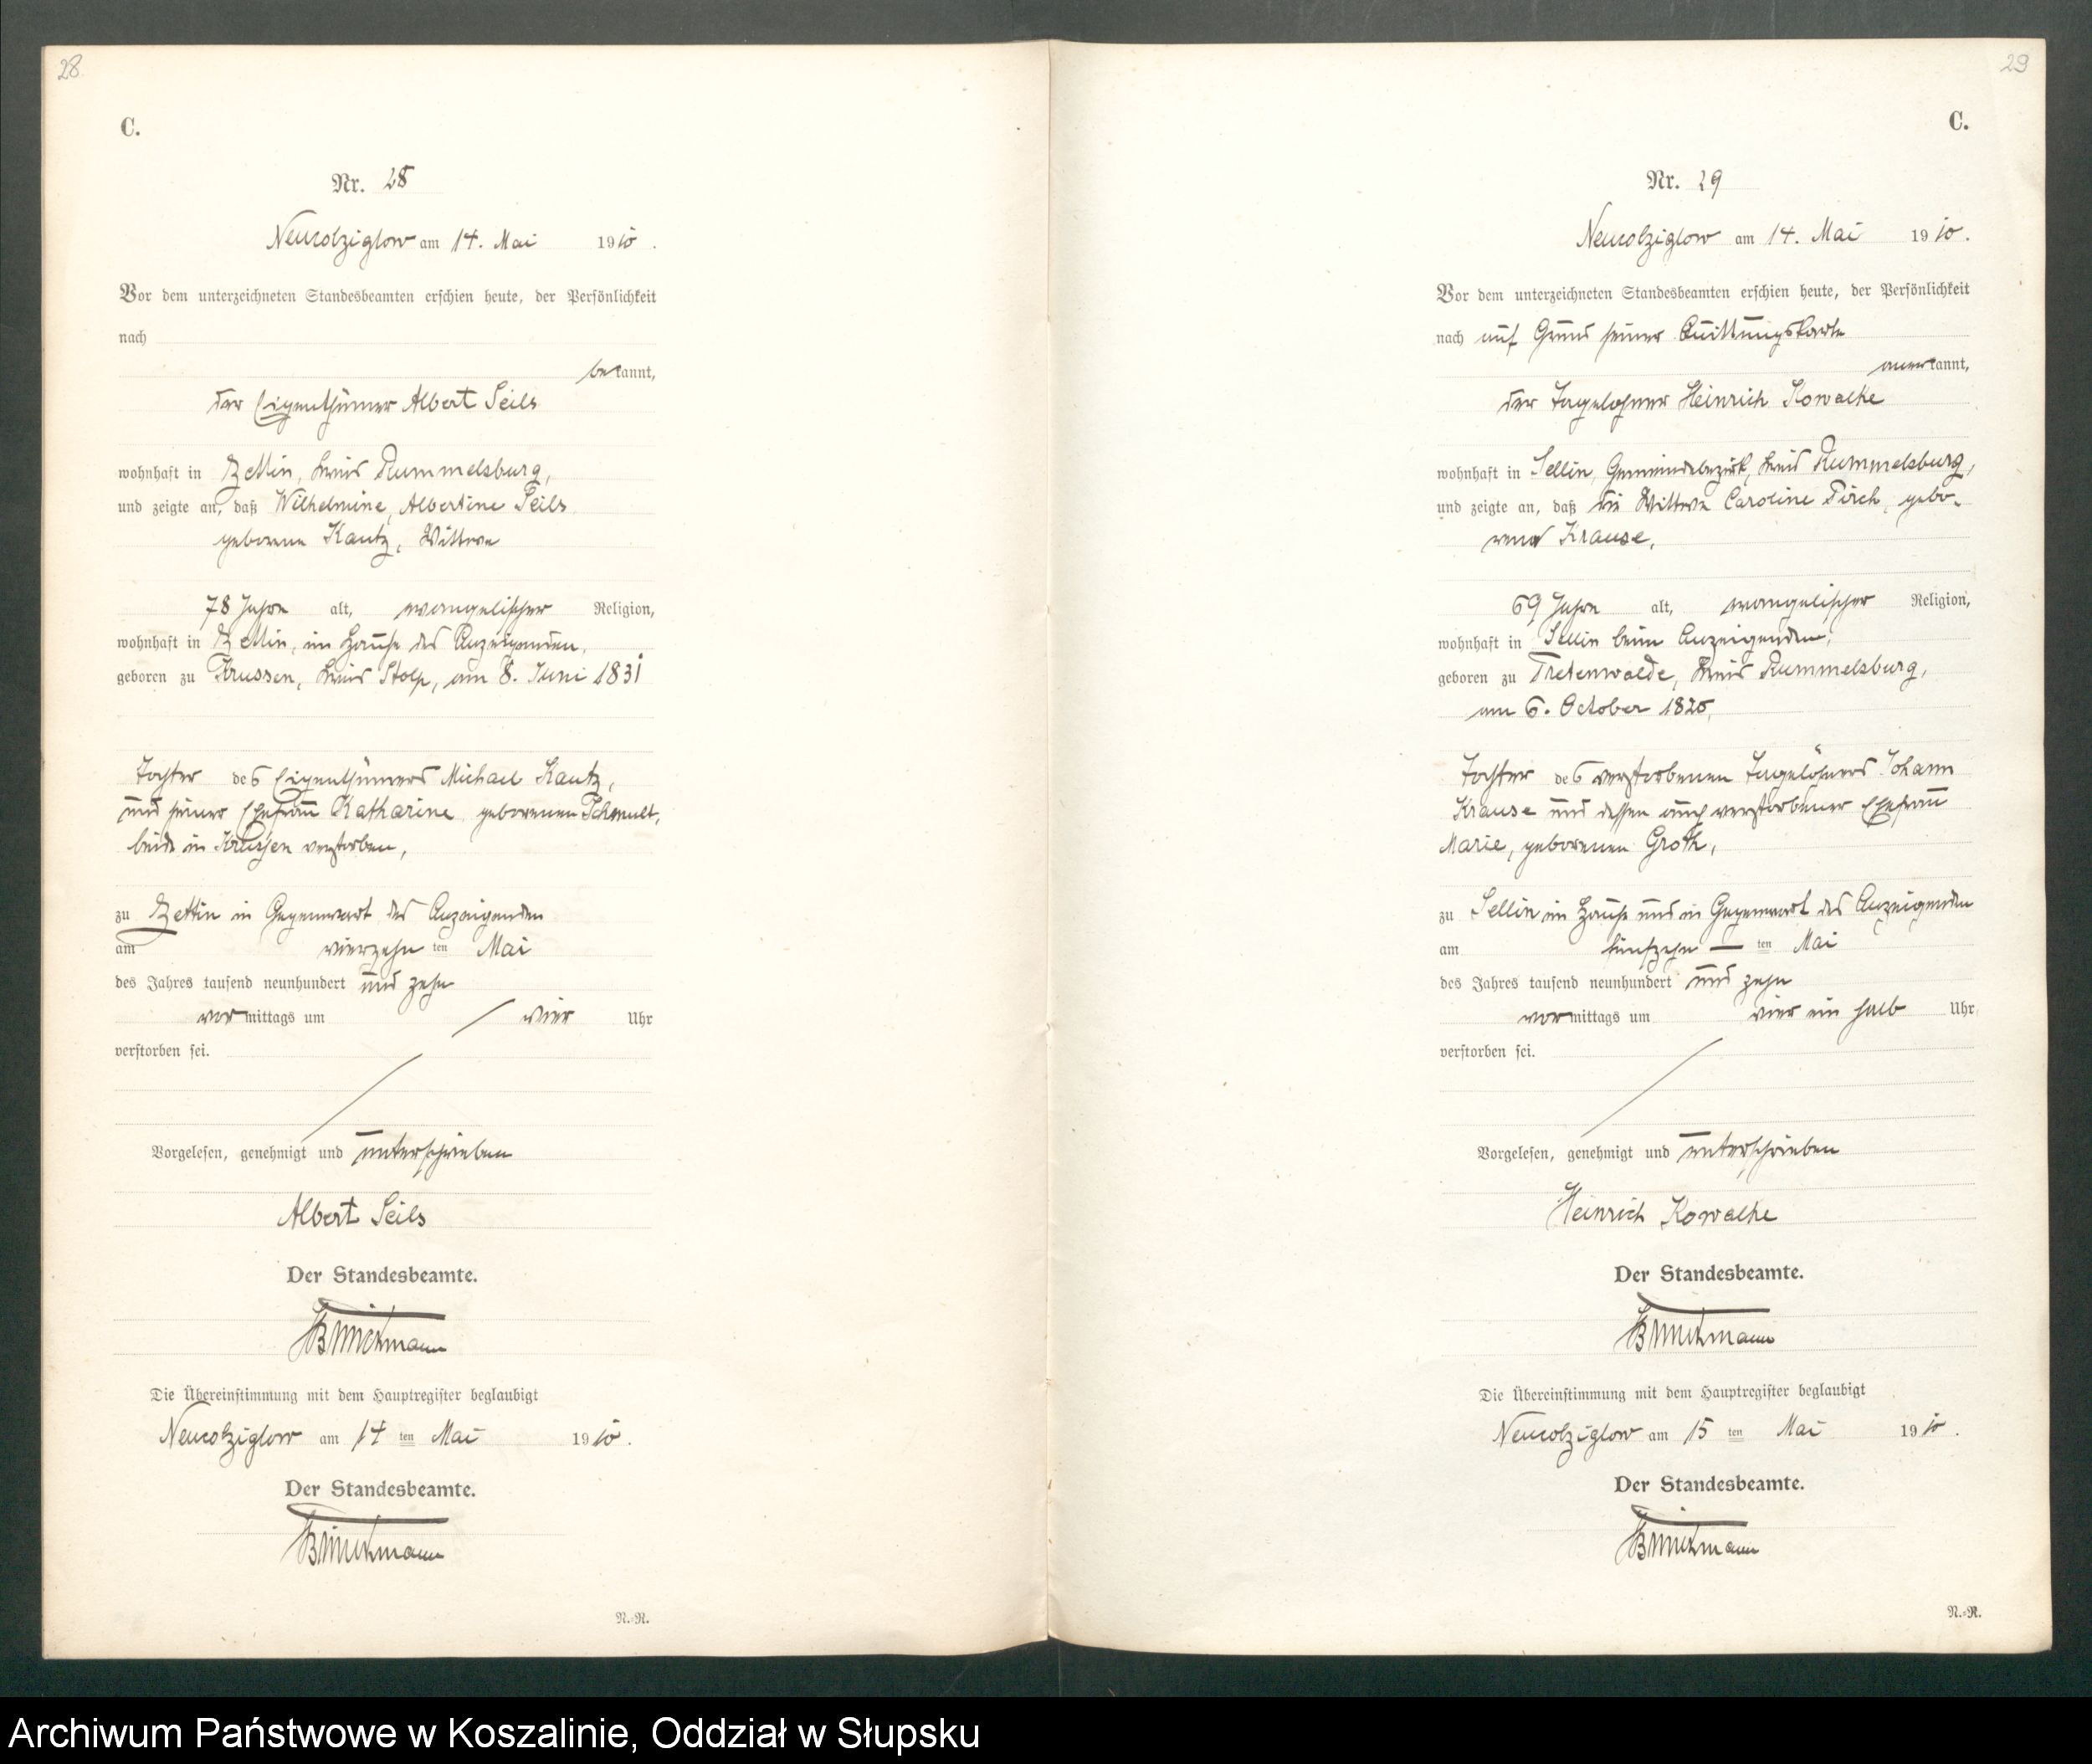 28
C.
Nr. 28
Neucolziglow am 14. Mai 1910.
Vor dem unterzeichneten Standesbeamten erschien heute, der Persönlichkeit
nach
bekannt,
der Eigenthümer Albert Seils
wohnhaft in Zettin, Kreis Rummelsburg,
und zeigte an, daß Wilhelmine, Albertine Seils
geborene Kautz, Wittwe
78 Jahre alt, evangelischer Religion,
wohnhaft in Zettin, im Hause des Anzeigenden,
geboren zu Krussen, Kreis Stolp, am 8. Juni 1831
Tochter des Eigenthümers Michael Kautz,
und seiner Ehefrau Katharine geborenen Schmult,
beide in Krussen verstorben,
zu Zettin in Gegenwart des Anzeigenden
am vierzehn ten Mai
des Jahres tausend neunhundert und zehn
vormittags um vier Uhr
verstorben sei.
Vorgelesen, genehmigt und unterschrieben
Albert Seils
Der Standesbeamte.
Die Übereinstimmung mit dem Hauptregister beglaubigt
Neucolziglow am 14 ten Mai 1910.
Der Standesbeamte.
N.-R.
29
C.
Nr. 29
Neucolziglow am 14. Mai 1910.
Vor dem unterzeichneten Standesbeamten erschien heute, der Persönlichkeit
nach auf Grund seiner Quittungskarte
anerkannt,
der Tagelöhner Heinrich Kowalke
wohnhaft in Sellin, Gemeindebezirk, Kreis Rummelsburg,
und zeigte an, daß die Wittwe Caroline Pirch, gebo-
rene Krause,
69 Jahre alt, evangelischer Religion,
wohnhaft in Sellin beim Anzeigenden,
geboren zu Tretenwalde, Kreis Rummelsburg,
am 6. October
Tochter des verstorbenen Tagelöhners Johann
Krause und dessen auch verstorbener Ehefrau
Marie, geborenen Groth,
zu Sellin im Hause und in Gegenwart des Anzeigenden
am fünfzehn — ten Mai
des Jahres tausend neunhundert und zehn
vormittags um vier ein halb Uhr
verstorben sei.
Vorgelesen, genehmigt und unterschrieben
Heinrich Kowalke
Der Standesbeamte.
Die Übereinstimmung mit dem Hauptregister beglaubigt
Neucolziglow am 15 ten Mai 1910.
Der Standesbeamte.
N.-R.
Archiwum Państwowe w Koszalinie, Oddział w Słupsku